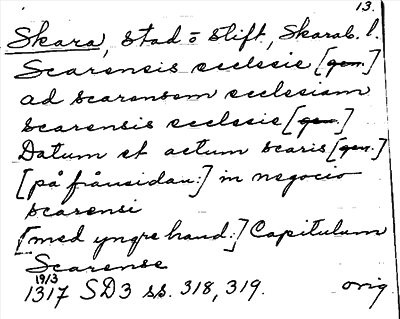 13.
Skara, stad o stift, Skarab. l.
Scarensis ecclesie [gen.]
ad scarensem ecclesiam
scarensis ecclesie [gen.]
Datum et actum scaris [gen.]
[på frånsidan:] in negocio
scarensi
[med yngre hand:] Capitulum
Scarense
19/3
1317 SD3 ss. 318, 319. orig.